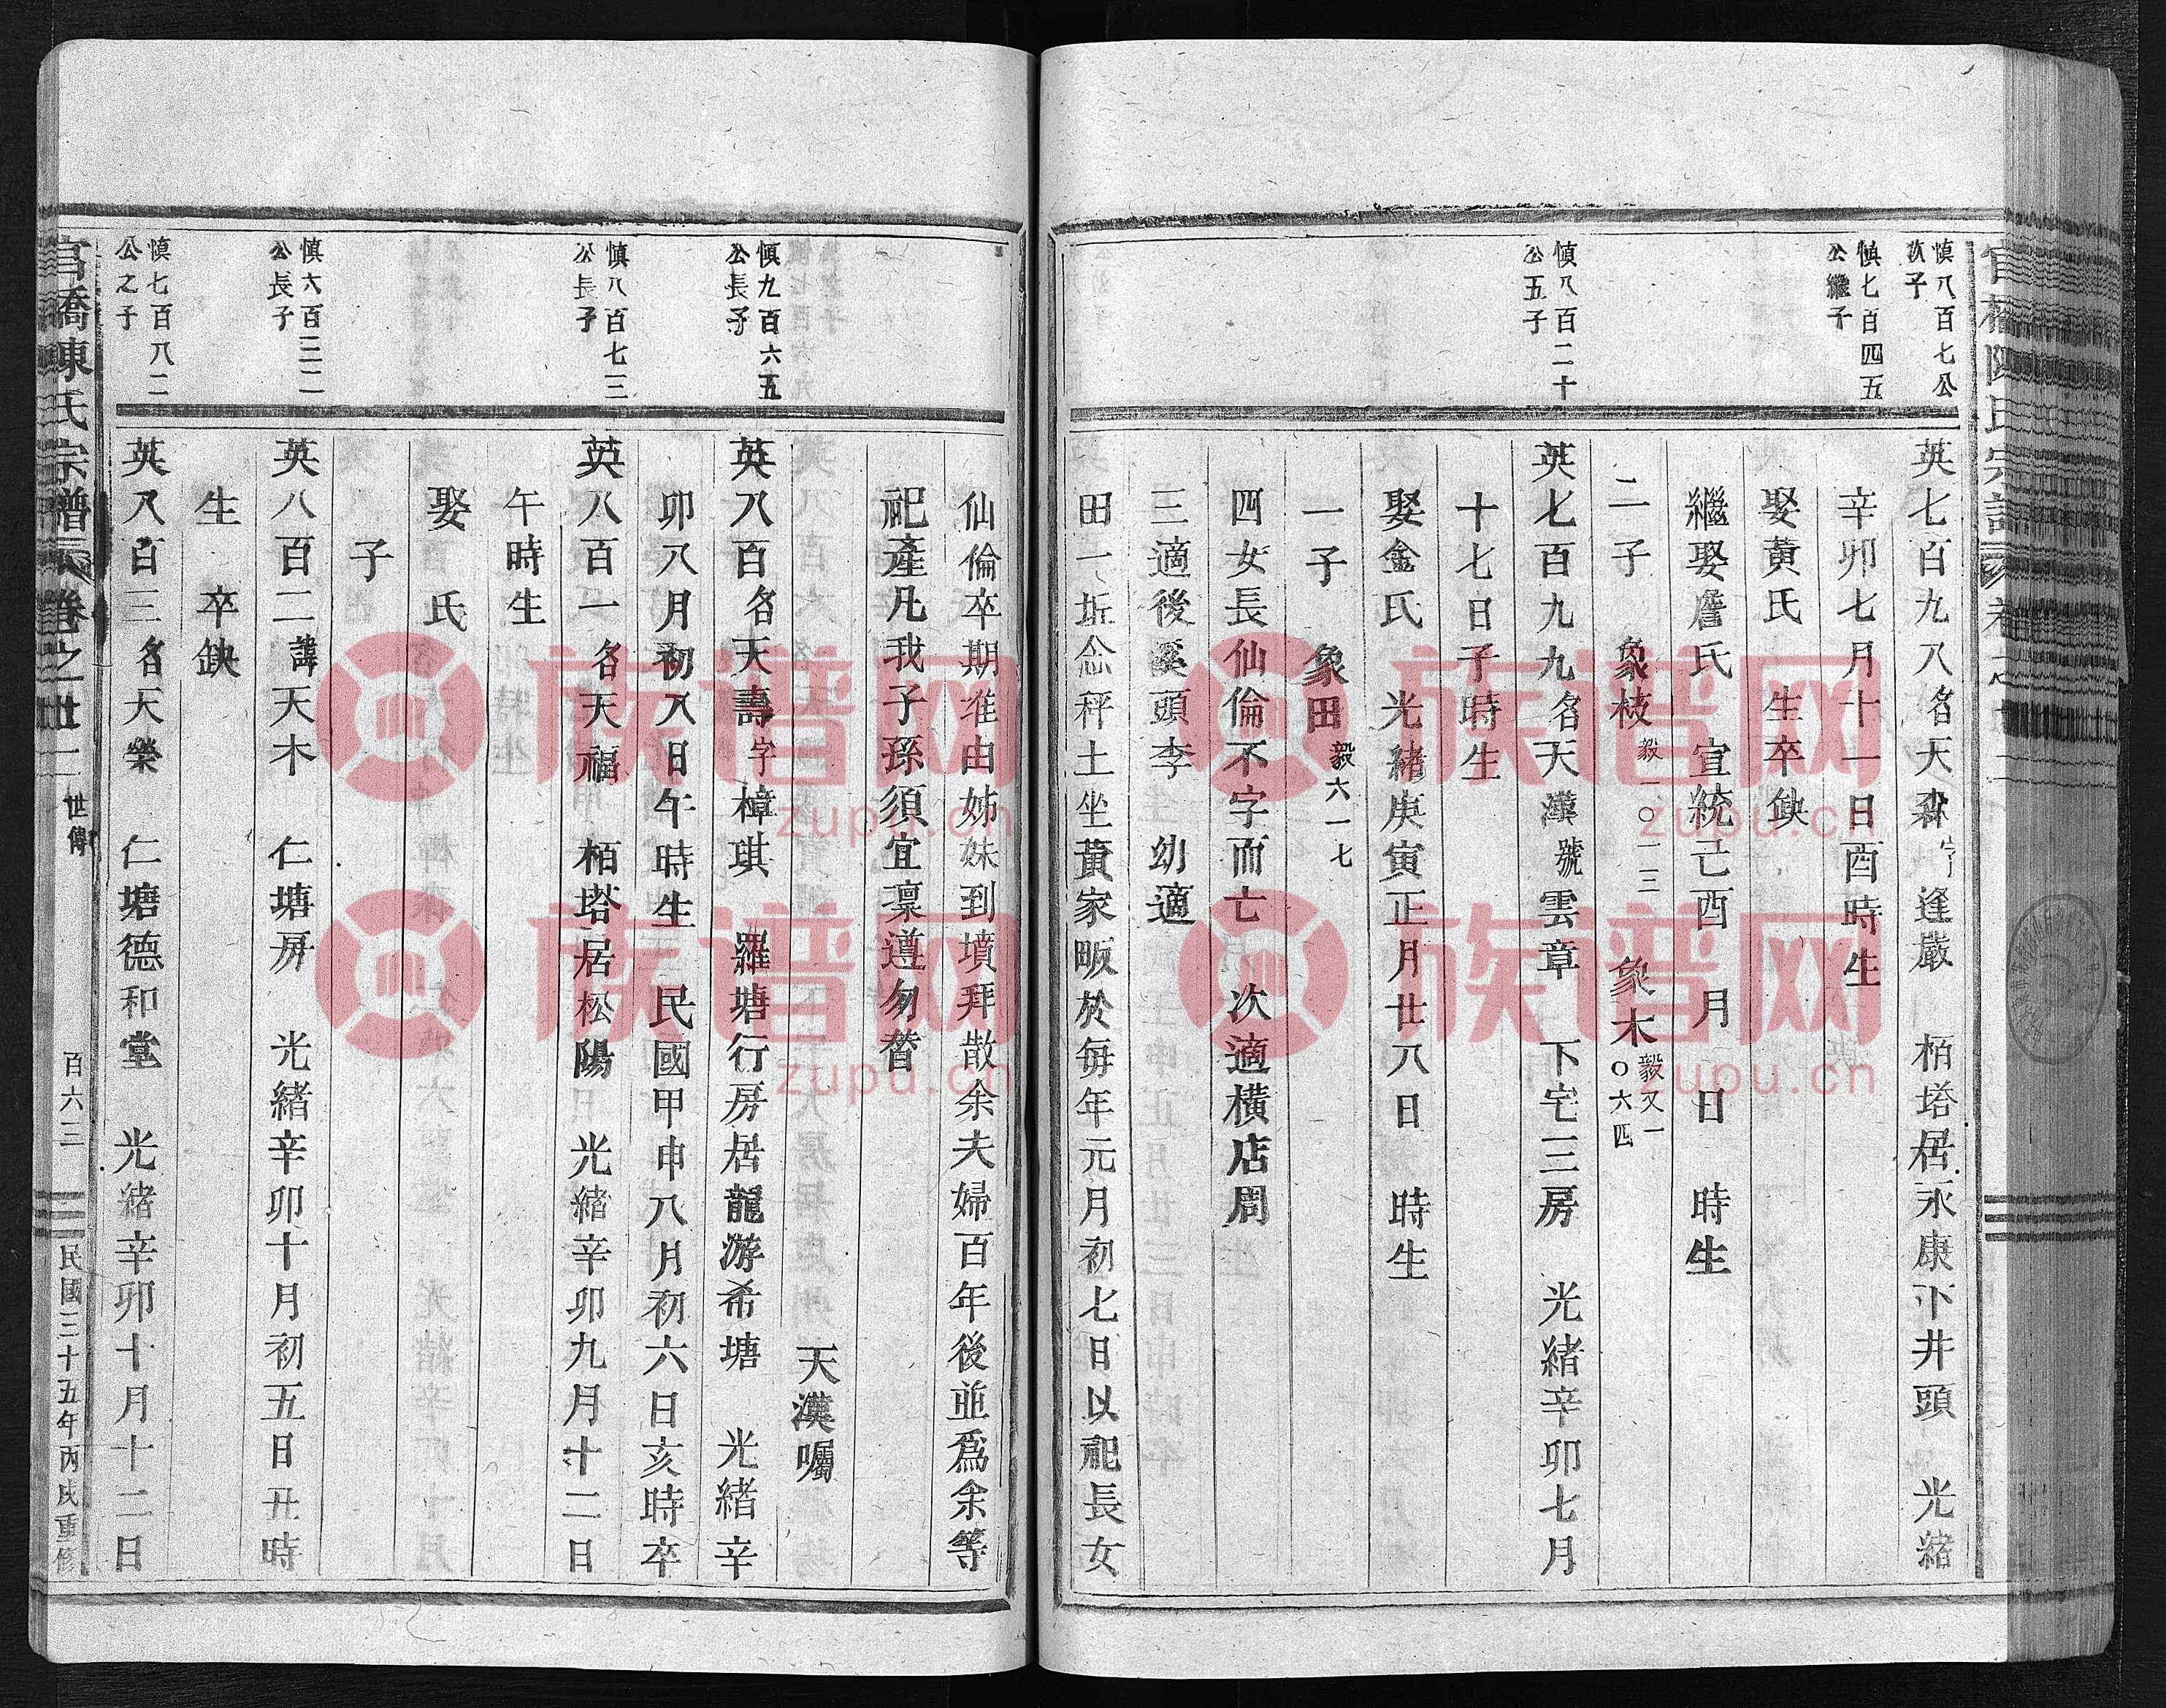 慎八百七公
次子
英七百九八名天森字逢嚴 栢塔居永康下井頭 光緒
辛卯七月十一日酉時生
慎七百四五
公繼子
娶黃氏 生卒缺
繼娶詹氏 宣統己酉 月 日 時生
二子 象枝毅一〇一三 象木毅又一〇六四
慎八百二十
公五子
英七百九九名天漢號雲章 下宅三房 光緒辛卯七月
十七日子時生
娶金氏 光緒庚寅正月廿八日 時生
一子 象田毅六一七
四女長仙倫不字而亡 次適橫店周
三適後溪頭李 幼適
田一坵念秤土坐黃家畈於每年元月初七日以祀長女
仙倫卒期准由姊妹到墳拜散余夫婦百年後並爲余等
祀產凡我子孫須宜稟遵勿替
天漢囑
慎九百六五
公長子
英八百名天壽字樟琪 羅塘行房居龍游希塘 光緒辛
卯八月初八日午時生 民國甲申八月初六日亥時卒
慎八百七三
公長子
英八百一名天福 栢塔居松陽 光緒辛卯九月十二日
午時生
娶 氏
子
慎六百三二
公長子
英八百二諱天木 仁塘房 光緒辛卯十月初五日丑時
生 卒缺
慎七百八二
公之子
英八百三名天榮 仁塘德和堂 光緒辛卯十月十二日
官橋陳氏宗譜 卷之廿二 世傳 百六三 民國三十五年丙戌重修
族谱网
zupu.cn
族谱网
zupu.cn
族谱网
zupu.cn
族谱网
zupu.cn